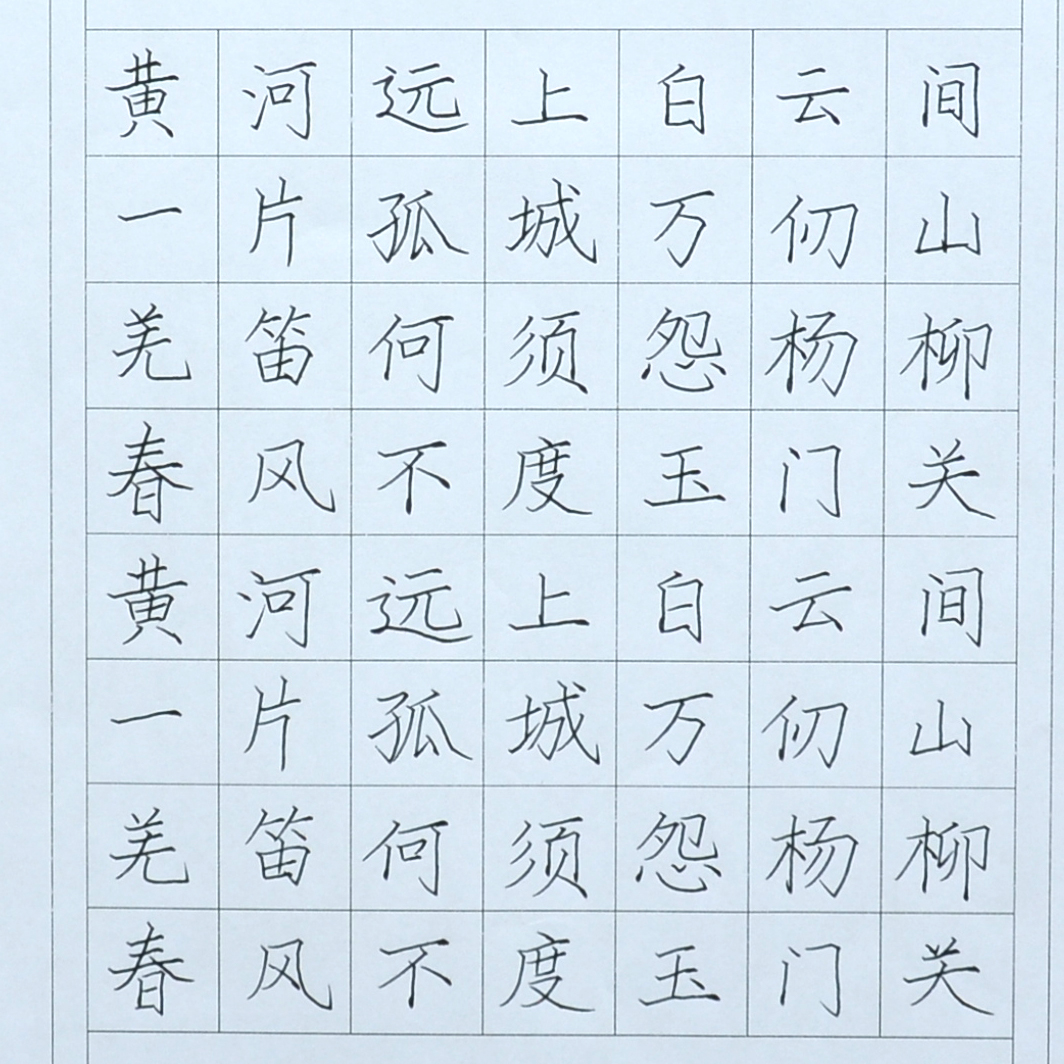 黄河远上白云间
一片孤城万仞山
羌笛何须怨杨柳
春风不度玉门关
黄河远上白云间
一片孤城万仞山
羌笛何须怨杨柳
春风不度玉门关